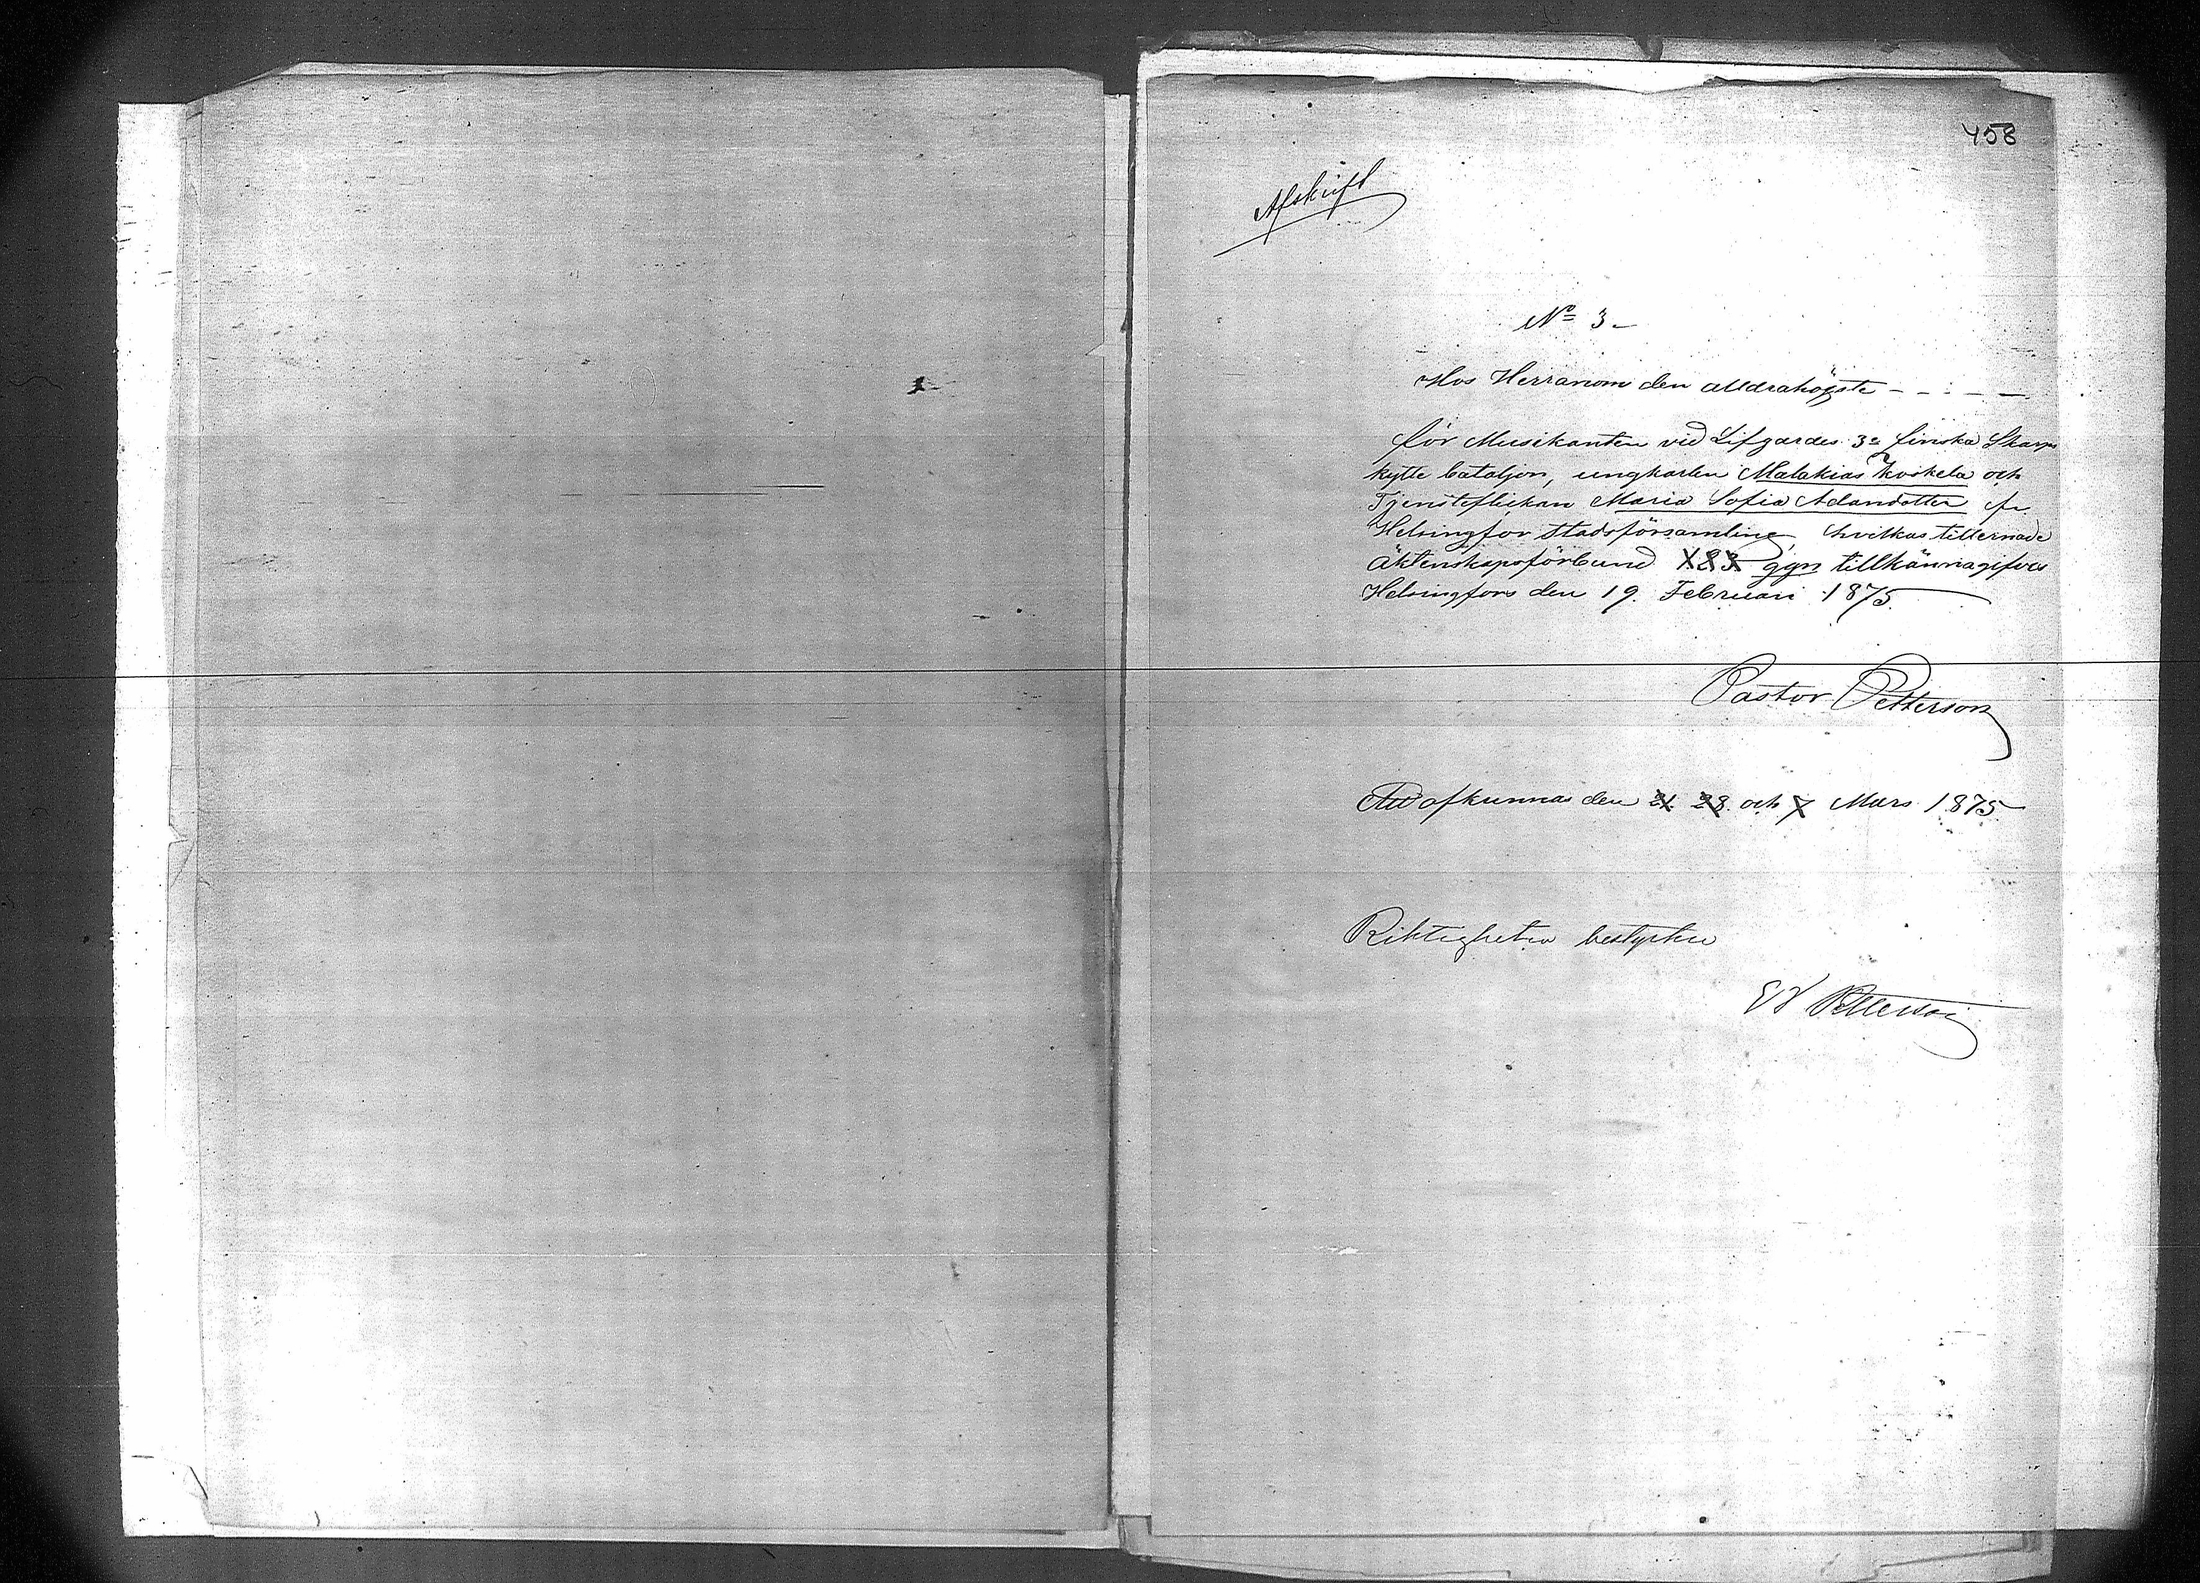 458
Afskrift
Nº 3
Hos Herranom den alldrahögste - - - - -
för Musikanten vid Lifgardes 3e finska Skarp
skytte bataljon, ungkarlen Malakias Koskela och
Tjensteflickan Maria Sofia Adamdotter fr.
Helsingfors stadsförsamling, hvilkas tillernade
äktenskapsförbund 1 2 3 ggn tillkännagifves
Helsingfors den 19. Februari 1875.
Pastor Petterson
Att afkunnas den 21. 28. och 7 Mars 1875
Riktigheten bestyrker
Petterson